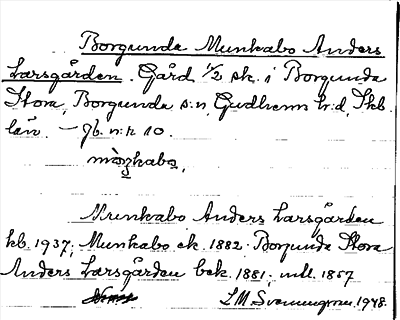 Borgunda Munkabo Anders
Larsgården. Gård 1/2 sk. i Borgunda
Stora, Borgunda s:n, Gudhems h:d, Skb.
län. — Jb. n:r 10.
Munkabo Anders Larsgården
kb. 1937; Munkabo ek. 1882. Borgunda Stora
Anders Larsgården bek. 1881;
L M Svenungsson 1948.